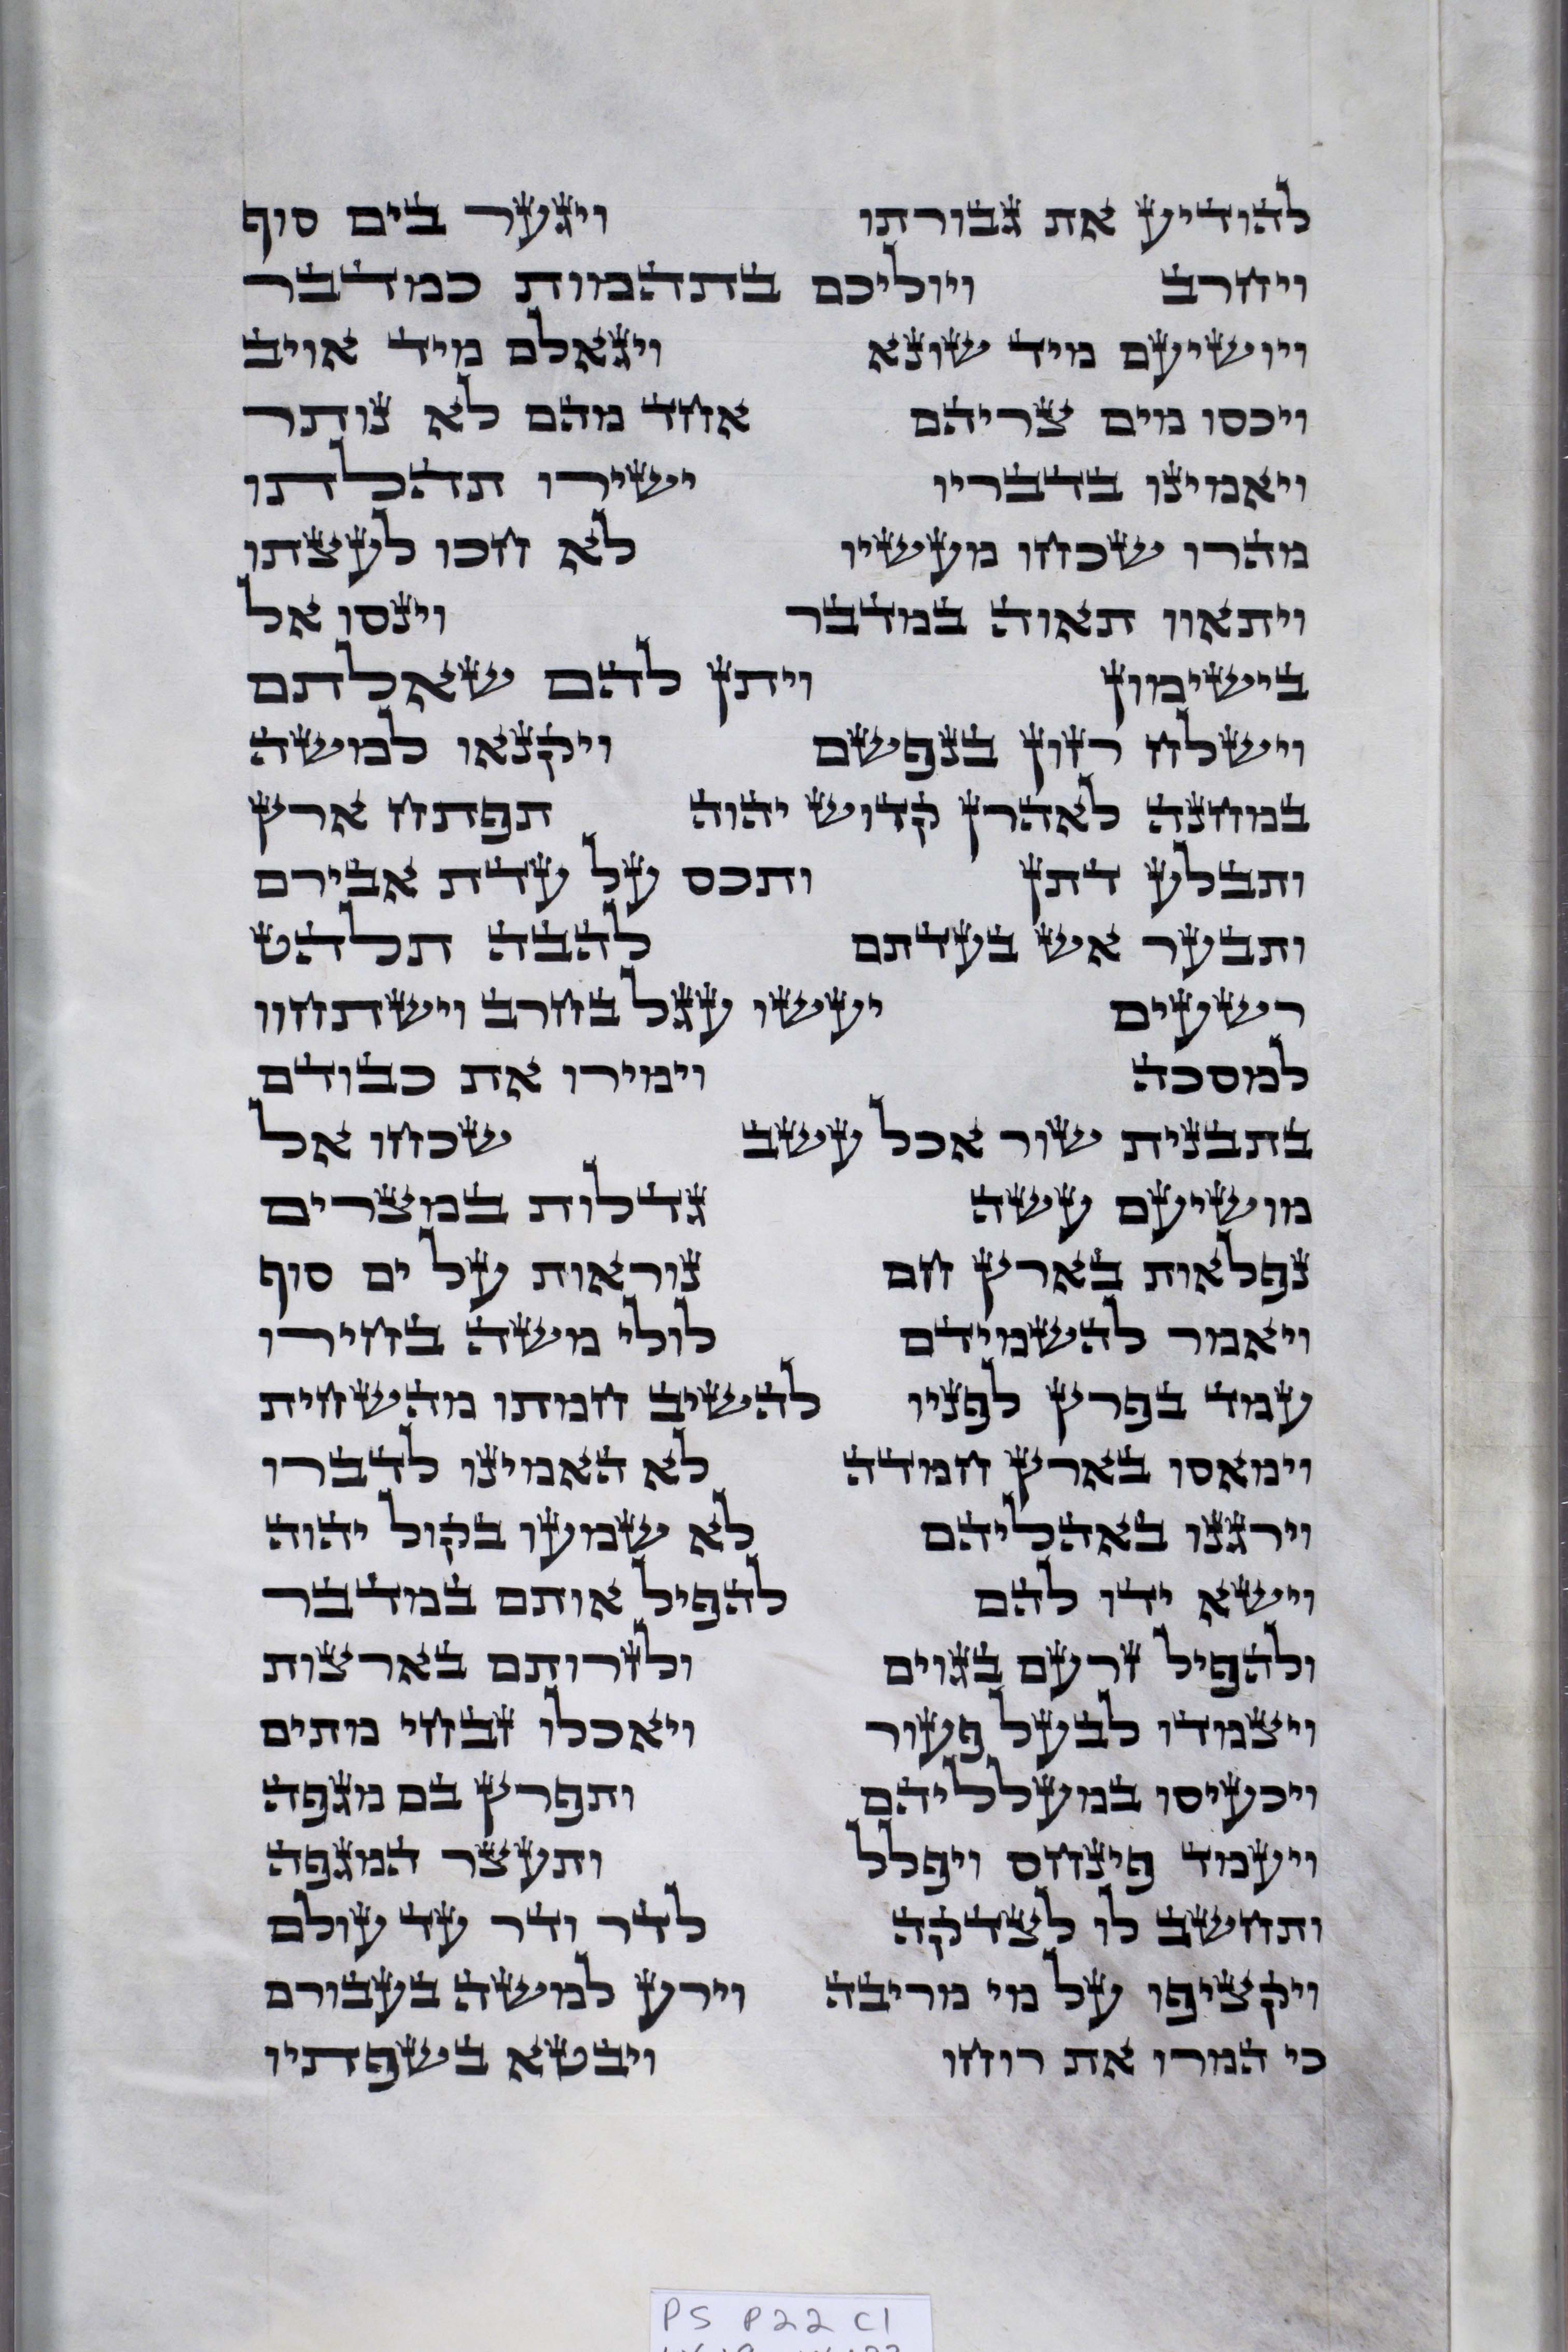 להודיע את גבורתו ויגער בים סוף
ויחרב ויוליכם בתהמות כמדבר
ויושיעם מיד שונא ויגאלם מיד אויב
ויכסו מים צריהם אחד מהם לא נותר
ויאמינו בדבריו ישירו תהלתו
מהרו שכחו מעשיו לא חכו לעצתו
ויתאוו תאוה במדבר וינסו אל
בישימון ויתן להם שאלתם
וישלח רזון בנפשם ויקנאו למשה
במחנה לאהרן קדוש יהוה תפתח ארץ
ותבלע דתן ותכס על עדת אבירם
ותבער אש בעדתם להבה תלהט
רשעים יעשו עגל בחרב וישתחוו
למסכה וימירו את כבודם
בתבנית שור אכל עשב שכחו אל
מושיעם עשה גדלות במצרים
נפלאות בארץ חם נוראות על ים סוף
ויאמר להשמידם לולי משה בחירו
עמד בפרץ לפניו להשיב חמתו מהשחית
וימאסו בארץ חמדה לא האמינו לדברו
וירגנו באהליהם לא שמעו בקול יהוה
וישא ידו להם להפיל אותם במדבר
ולהפיל זרעם בגוים ולזרותם בארצות
ויצמדו לבעל פעור ויאכלו זבחי מתים
ויכעיסו במעלליהם ותפרץ בם מגפה
ויעמד פינחס ויפלל ותעצר המגפה
ותחשב לו לצדקה לדר ודר עד עולם
ויקציפו על מי מריבה וירע למשה בעבורם
כי המרו את רוחו ויבטא בשפתיו
PS P22 C1